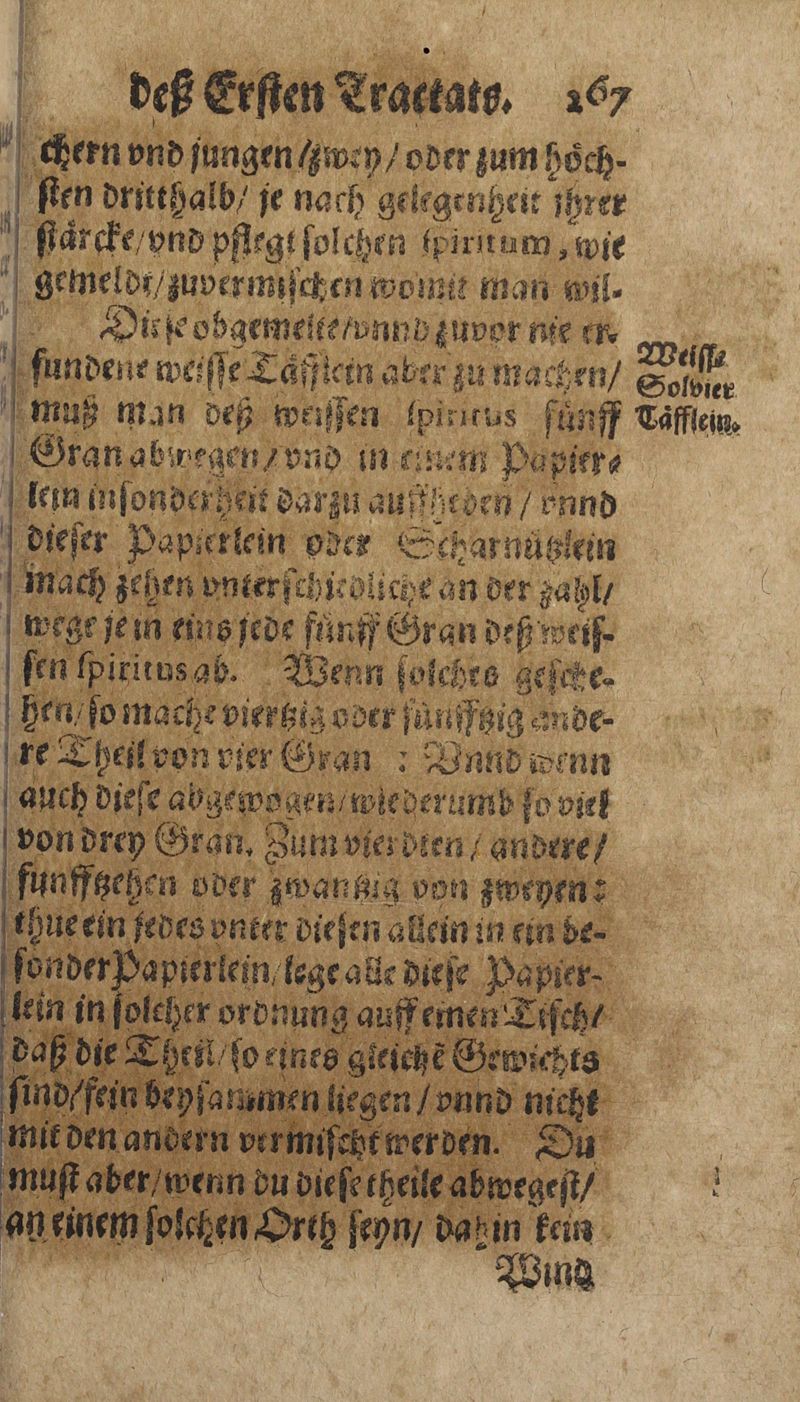 deß Erſten Tractats. 267
chern vnd jungen/zwey/oder zum höch-
ſten dritthalb/ je nach gelegenheit jhrer
ſtärcke/vnd pflegt ſolchen ſpiritum, wie
gemeldt/zuvermiſchen womit man wil.
Dieſe obgemelte/vnnd zuvor nie er-
fundene weiſſe Täfflein aber zu machen/
muß man deß weiſſen ſpiritus fünff
Gran abwegen/vnd in einem Papier-
lein inſonderheit darzu auffheben/vnnd
dieſer Papierlein oder Scharnützlein
mach zehen vnterſchiedliche an der zahl/
wege je in eins jede fünff Gran deß weiſ-
ſen ſpiritus ab. Wenn ſolches geſche-
hen/ſo mache viertzig oder fünfftzig ande-
re Theil von vier Gran : Vnnd wenn
auch dieſe abgewogen/wiederumb ſo viel
von drey Gran. Zum vierdten/andere/
funfftzehen oder zwantzig von zweyen:
thue ein jedes vnter dieſen allein in ein be-
ſonder Papierlein/lege alle dieſe Papier-
lein in ſolcher ordnung auff einen Tiſch/
daß die Theil/ſo eines gleichẽ Gewichts
ſind/fein beyſammen liegen/vnnd nicht
mit den andern vermiſcht werden. Du
muſt aber/wenn du dieſe theile abwegeſt/
an einem ſolchen Orth ſeyn/ dahin kein
Wind
Weiſſe
Solvier
Täfflein.